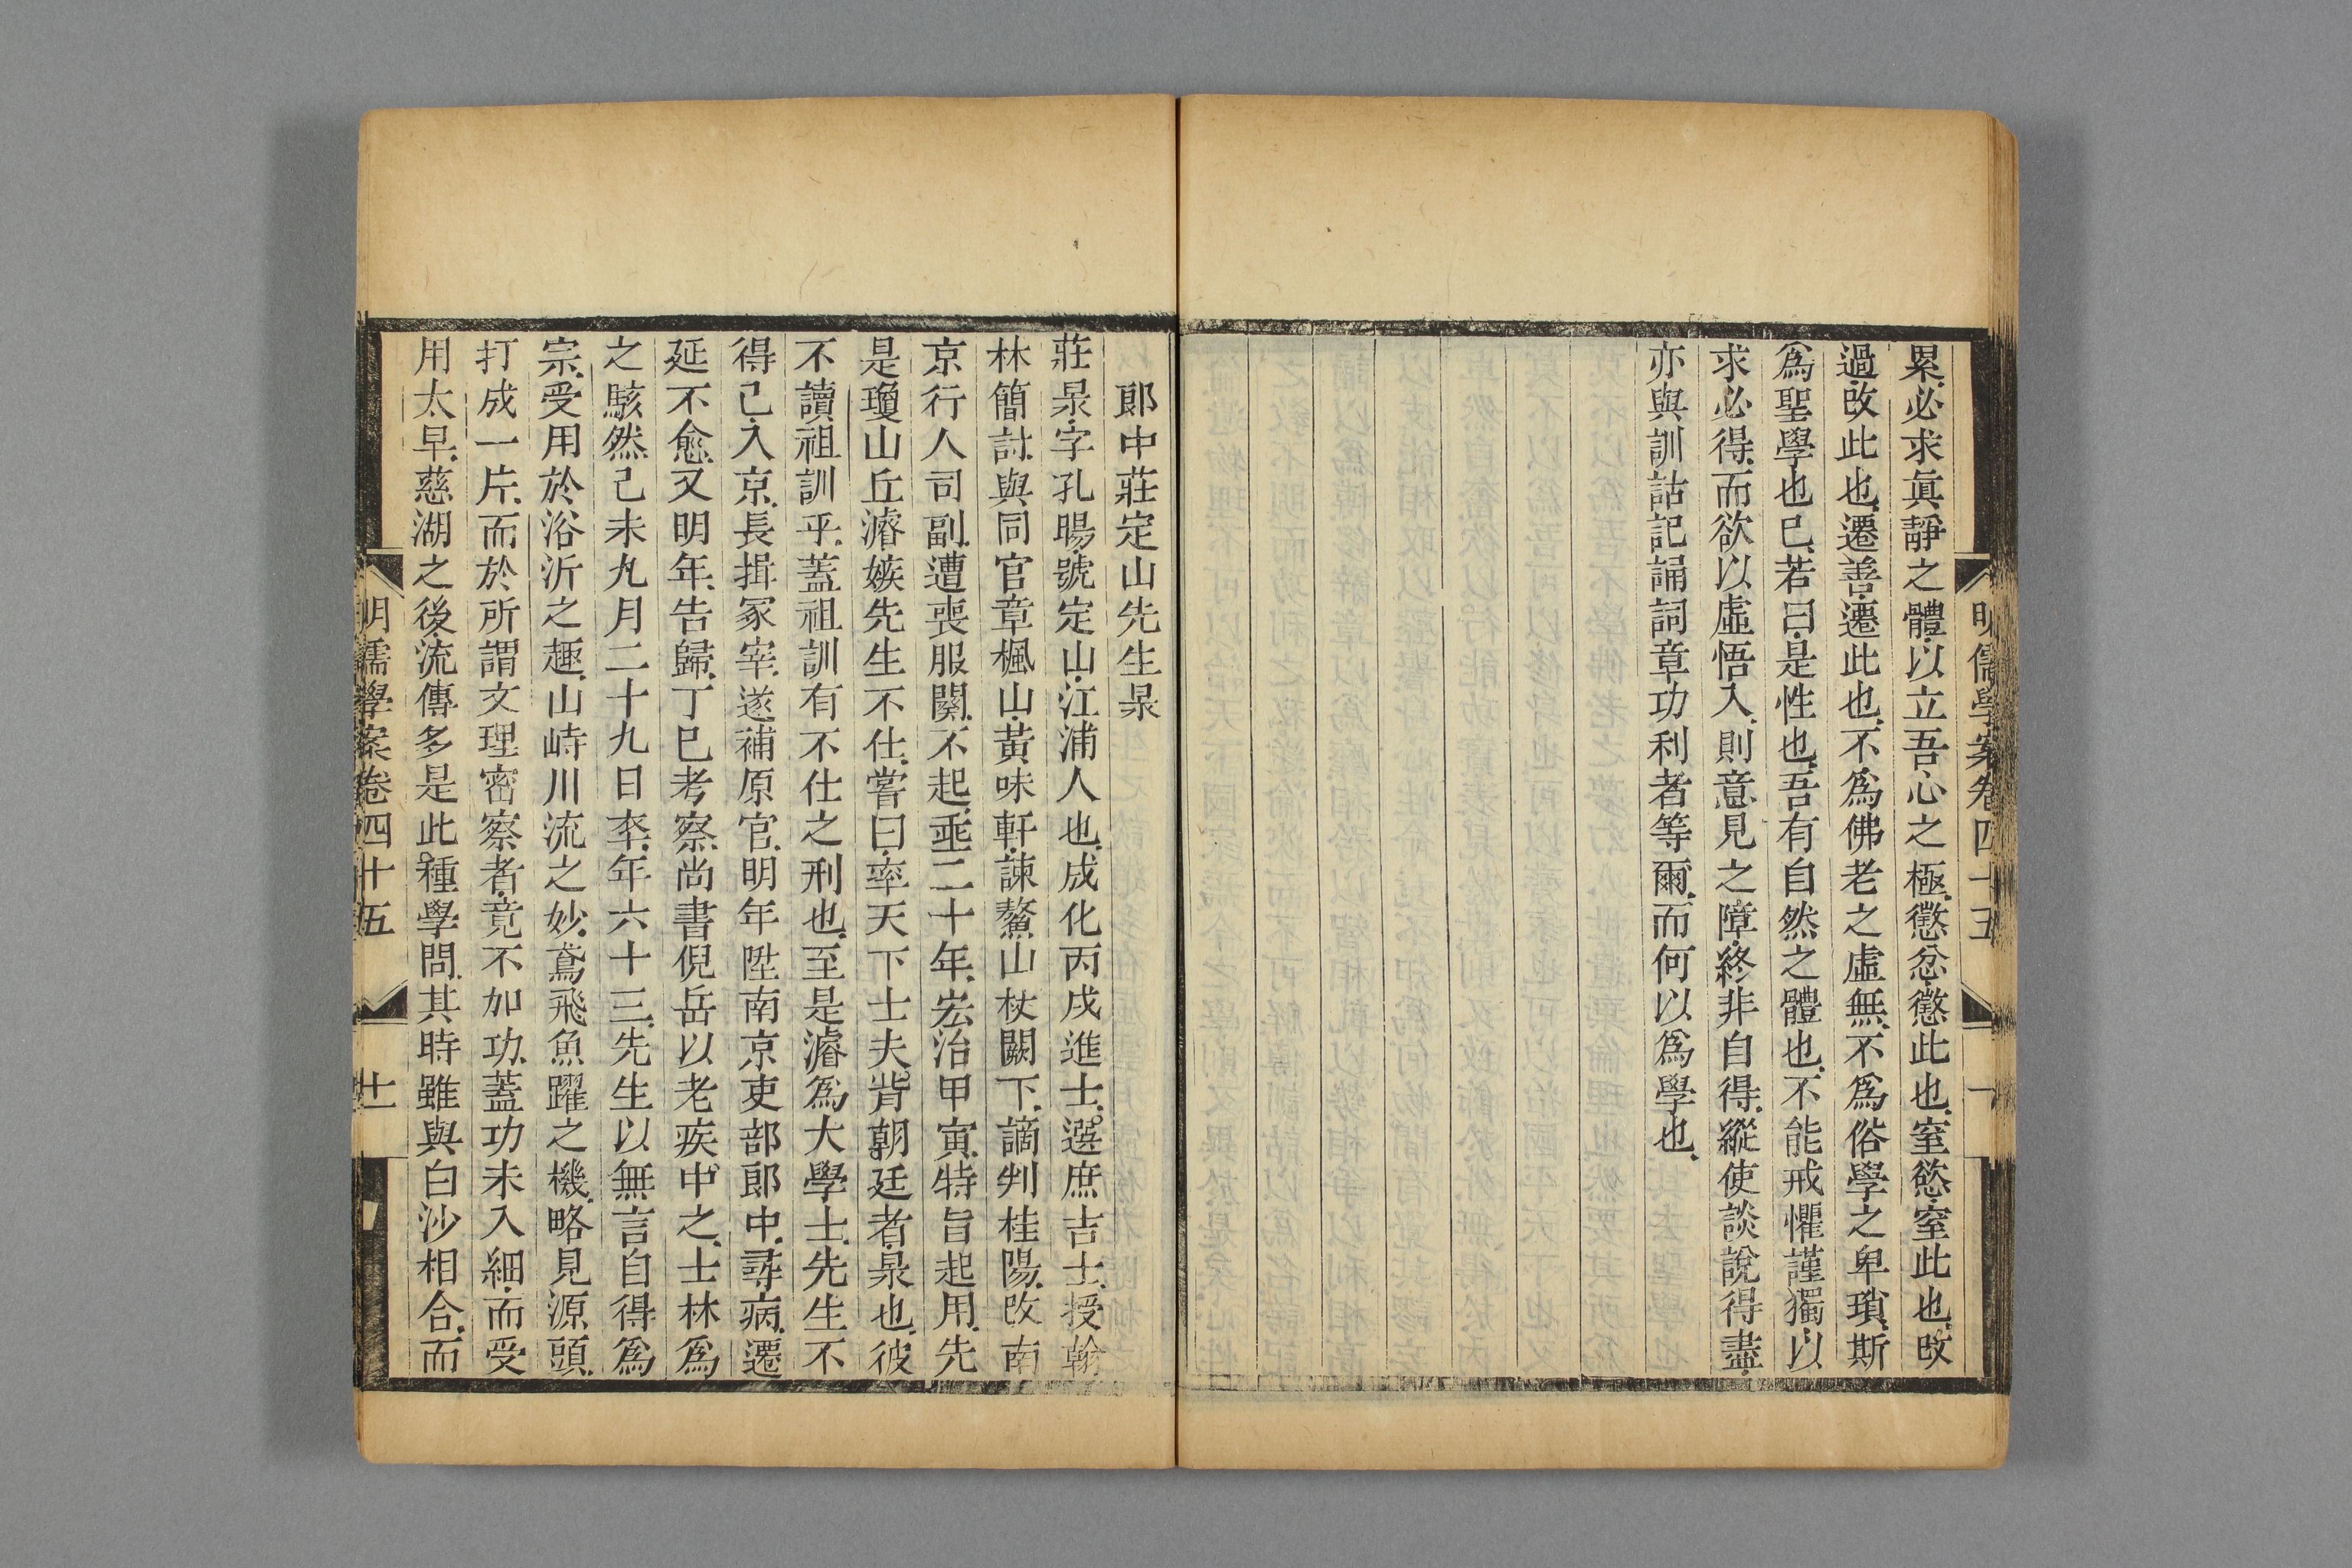 累必求眞靜之體以立吾心之極懲忿懲此也窒慾窒此也改
過改此也遷善遷此也不爲佛老之虛無不爲俗學之卑瑣斯
爲聖學也已若曰是性也吾有自然之體也不能戒懼謹獨以
求必得而欲以虛悟入則意見之障終非自得縱使談說得盡
亦與訓詁記誦詞章功利者等爾而何以爲學也
郞中莊定山先生㫤
莊㫤字孔暘號定山江浦人也成化丙戌進士選庶吉士授翰
林簡討與同官章楓山黃味軒諫鰲山杖闕下謫判桂陽改南
京行人司副遭喪服闋不起垂二十年宏治甲寅特旨起用先
是瓊山丘濬嫉先生不仕嘗曰率天下士夫背朝廷者㫤也彼
不讀祖訓乎蓋祖訓有不仕之刑也至是濬爲大學士先生不
得已入京長揖冢宰遂補原官明年陞南京吏部郞中尋病遷
延不愈又明年告歸丁巳考察尚書倪岳以老疾中之士林爲
之駭然己未九月二十九日卒年六十三先生以無言自得爲
宗受用於浴沂之趣山峙川流之妙鳶飛魚躍之機略見源頭
打成一片而於所謂文理密察者竟不加功蓋功未入細而受
用太早慈湖之後流傳多是此種學問其時雖與白沙相合而
明儒學案卷四十五